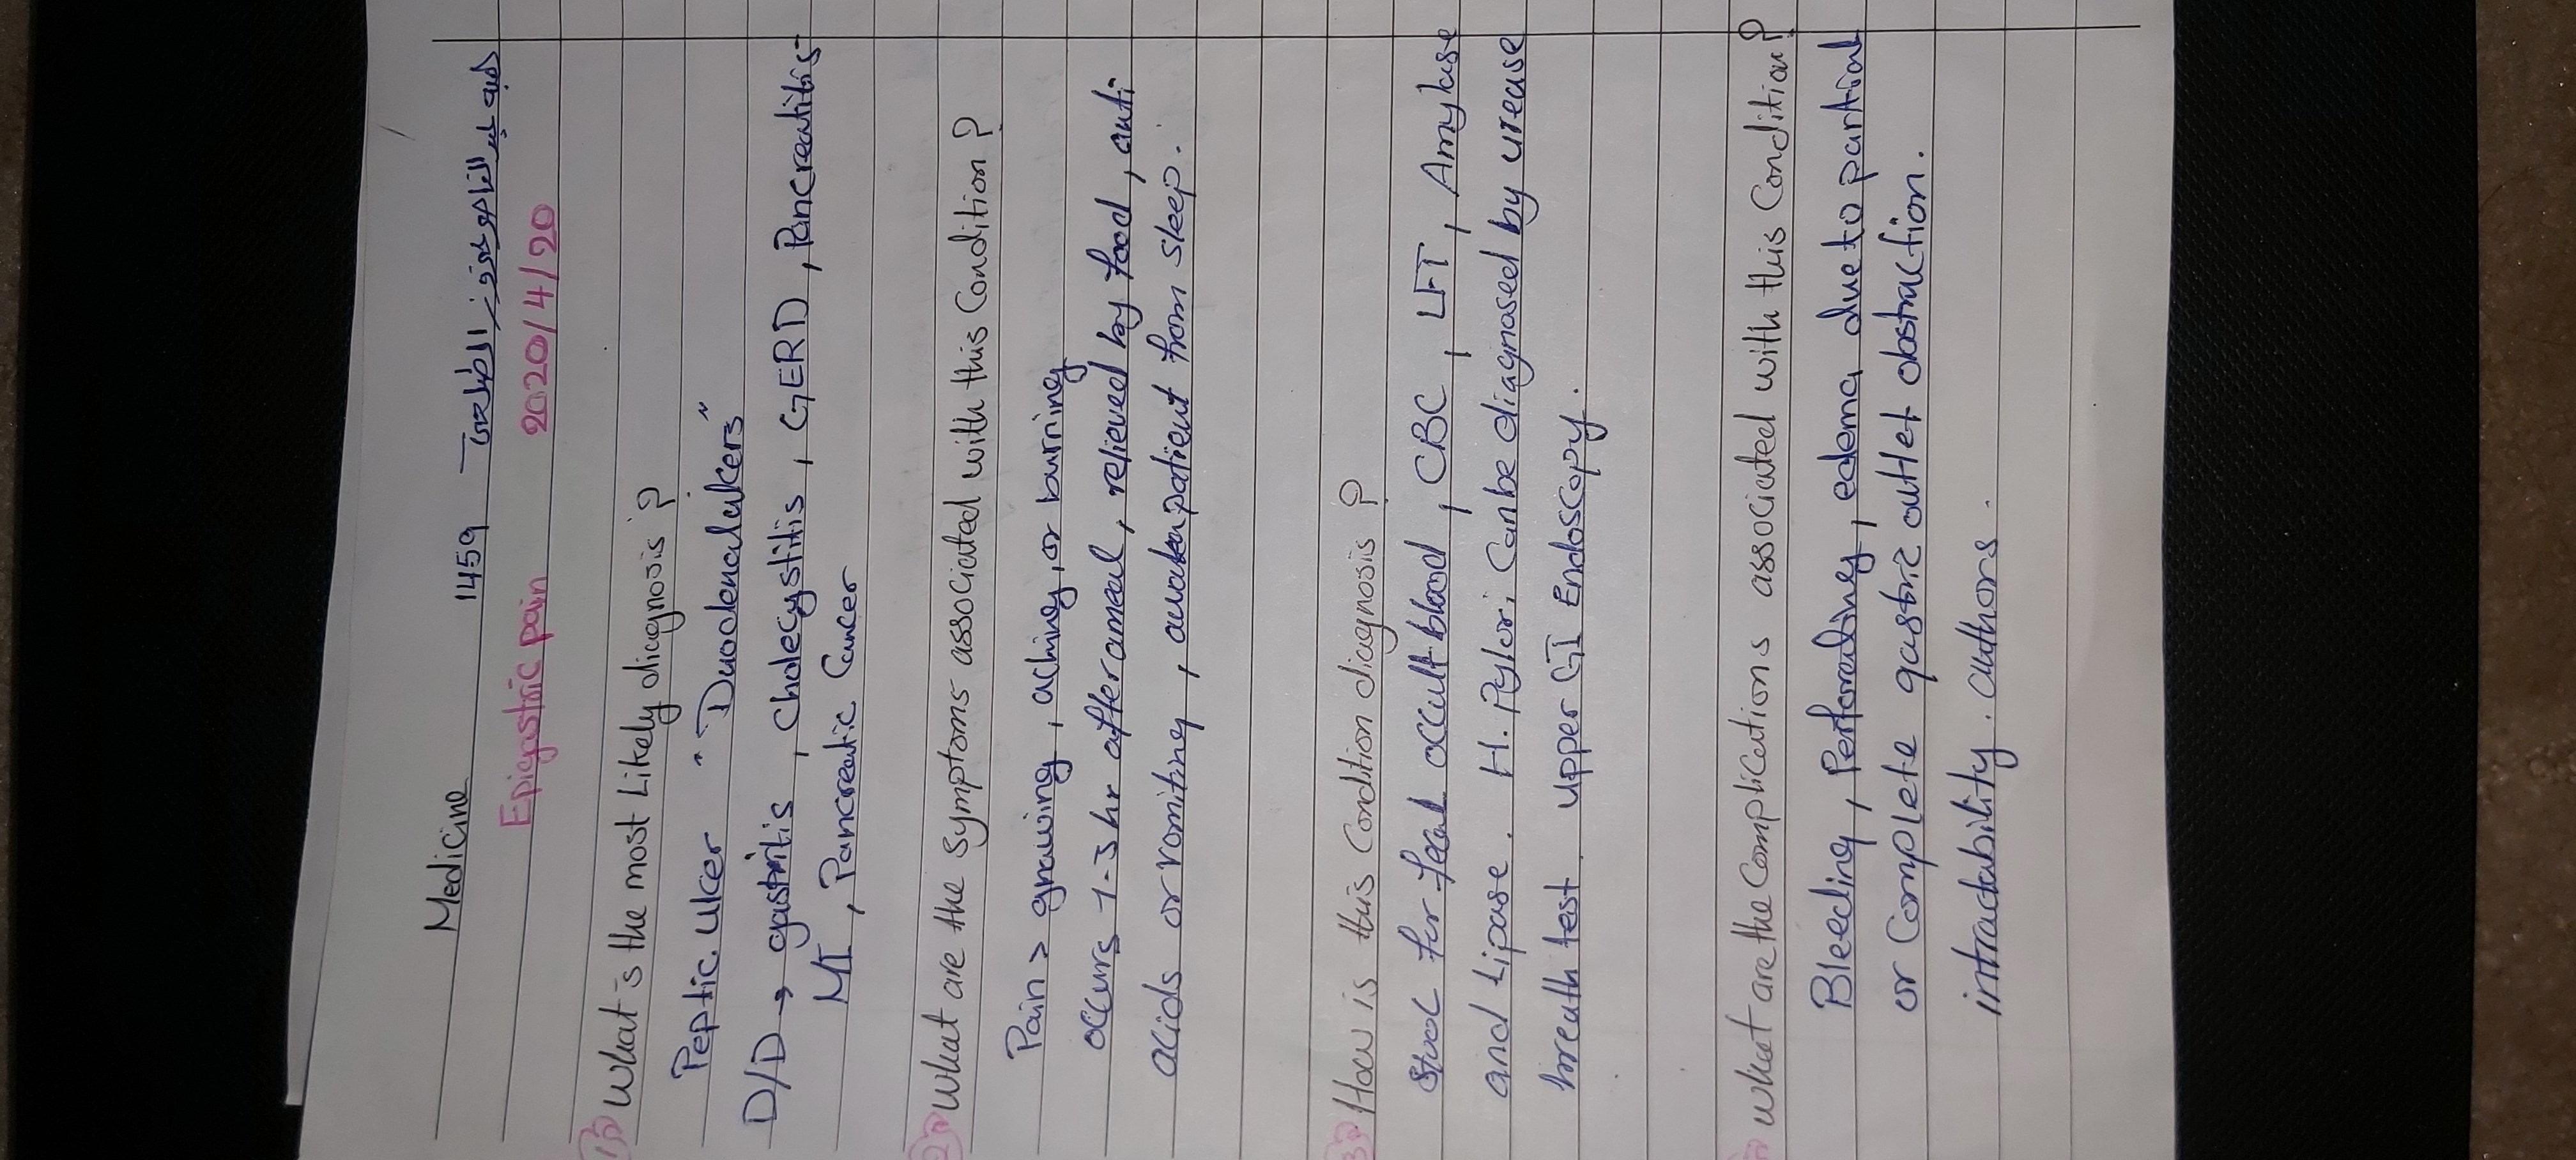 Medicine 1459
Epigastric pain 2020/4/20
1) What's the most Likely diagnosis?
Peptic. ulcer "Duodenal ulcers"
D/D → gastritis, cholecystitis, GERD, Pancreatitis
MI, Pancreatic Cancer
2) What are the symptoms associated with this Condition?
Pain > gnawing, aching, or burning
occurs 1-3 hr after a meal, relieved by food, anti
acids or vomiting, awaken patient from sleep.
3) How is this Condition diagnosis?
Stool for fecal occult blood, CBC, LFT, Amylase
and Lipase. H. Pylori. Can be diagnosed by urease
breath test upper GI Endoscopy.
What are the Complications associated with this Condition?
Bleeding, Perforading, edema due to partial
or Complete gastric outlet obstraction.
intractability. authors.